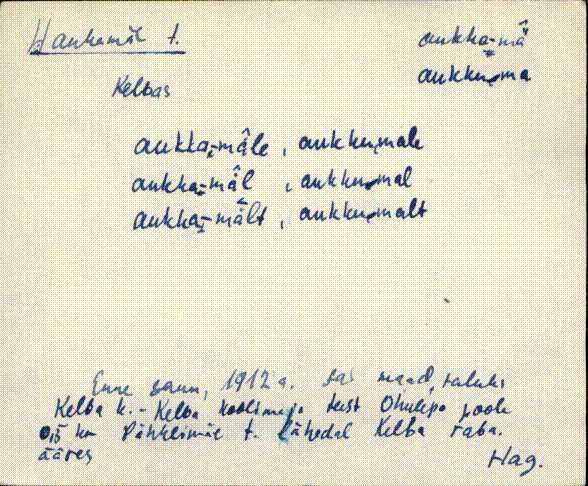 Haukamäe t.
aukka-mä
aukku-ma
Kelbas
aukka-mäle, aukku-male
aukka-mäl, aukku-mal
aukka-mält, aukku-malt
Enne saun, 1912 a. sai maad, taluks
Kelba k. - Kelba koolimaja teest Ohulepa poole
0,5 km Pähklimäe t. lähedal Kelba raba.
ääres
Hag.